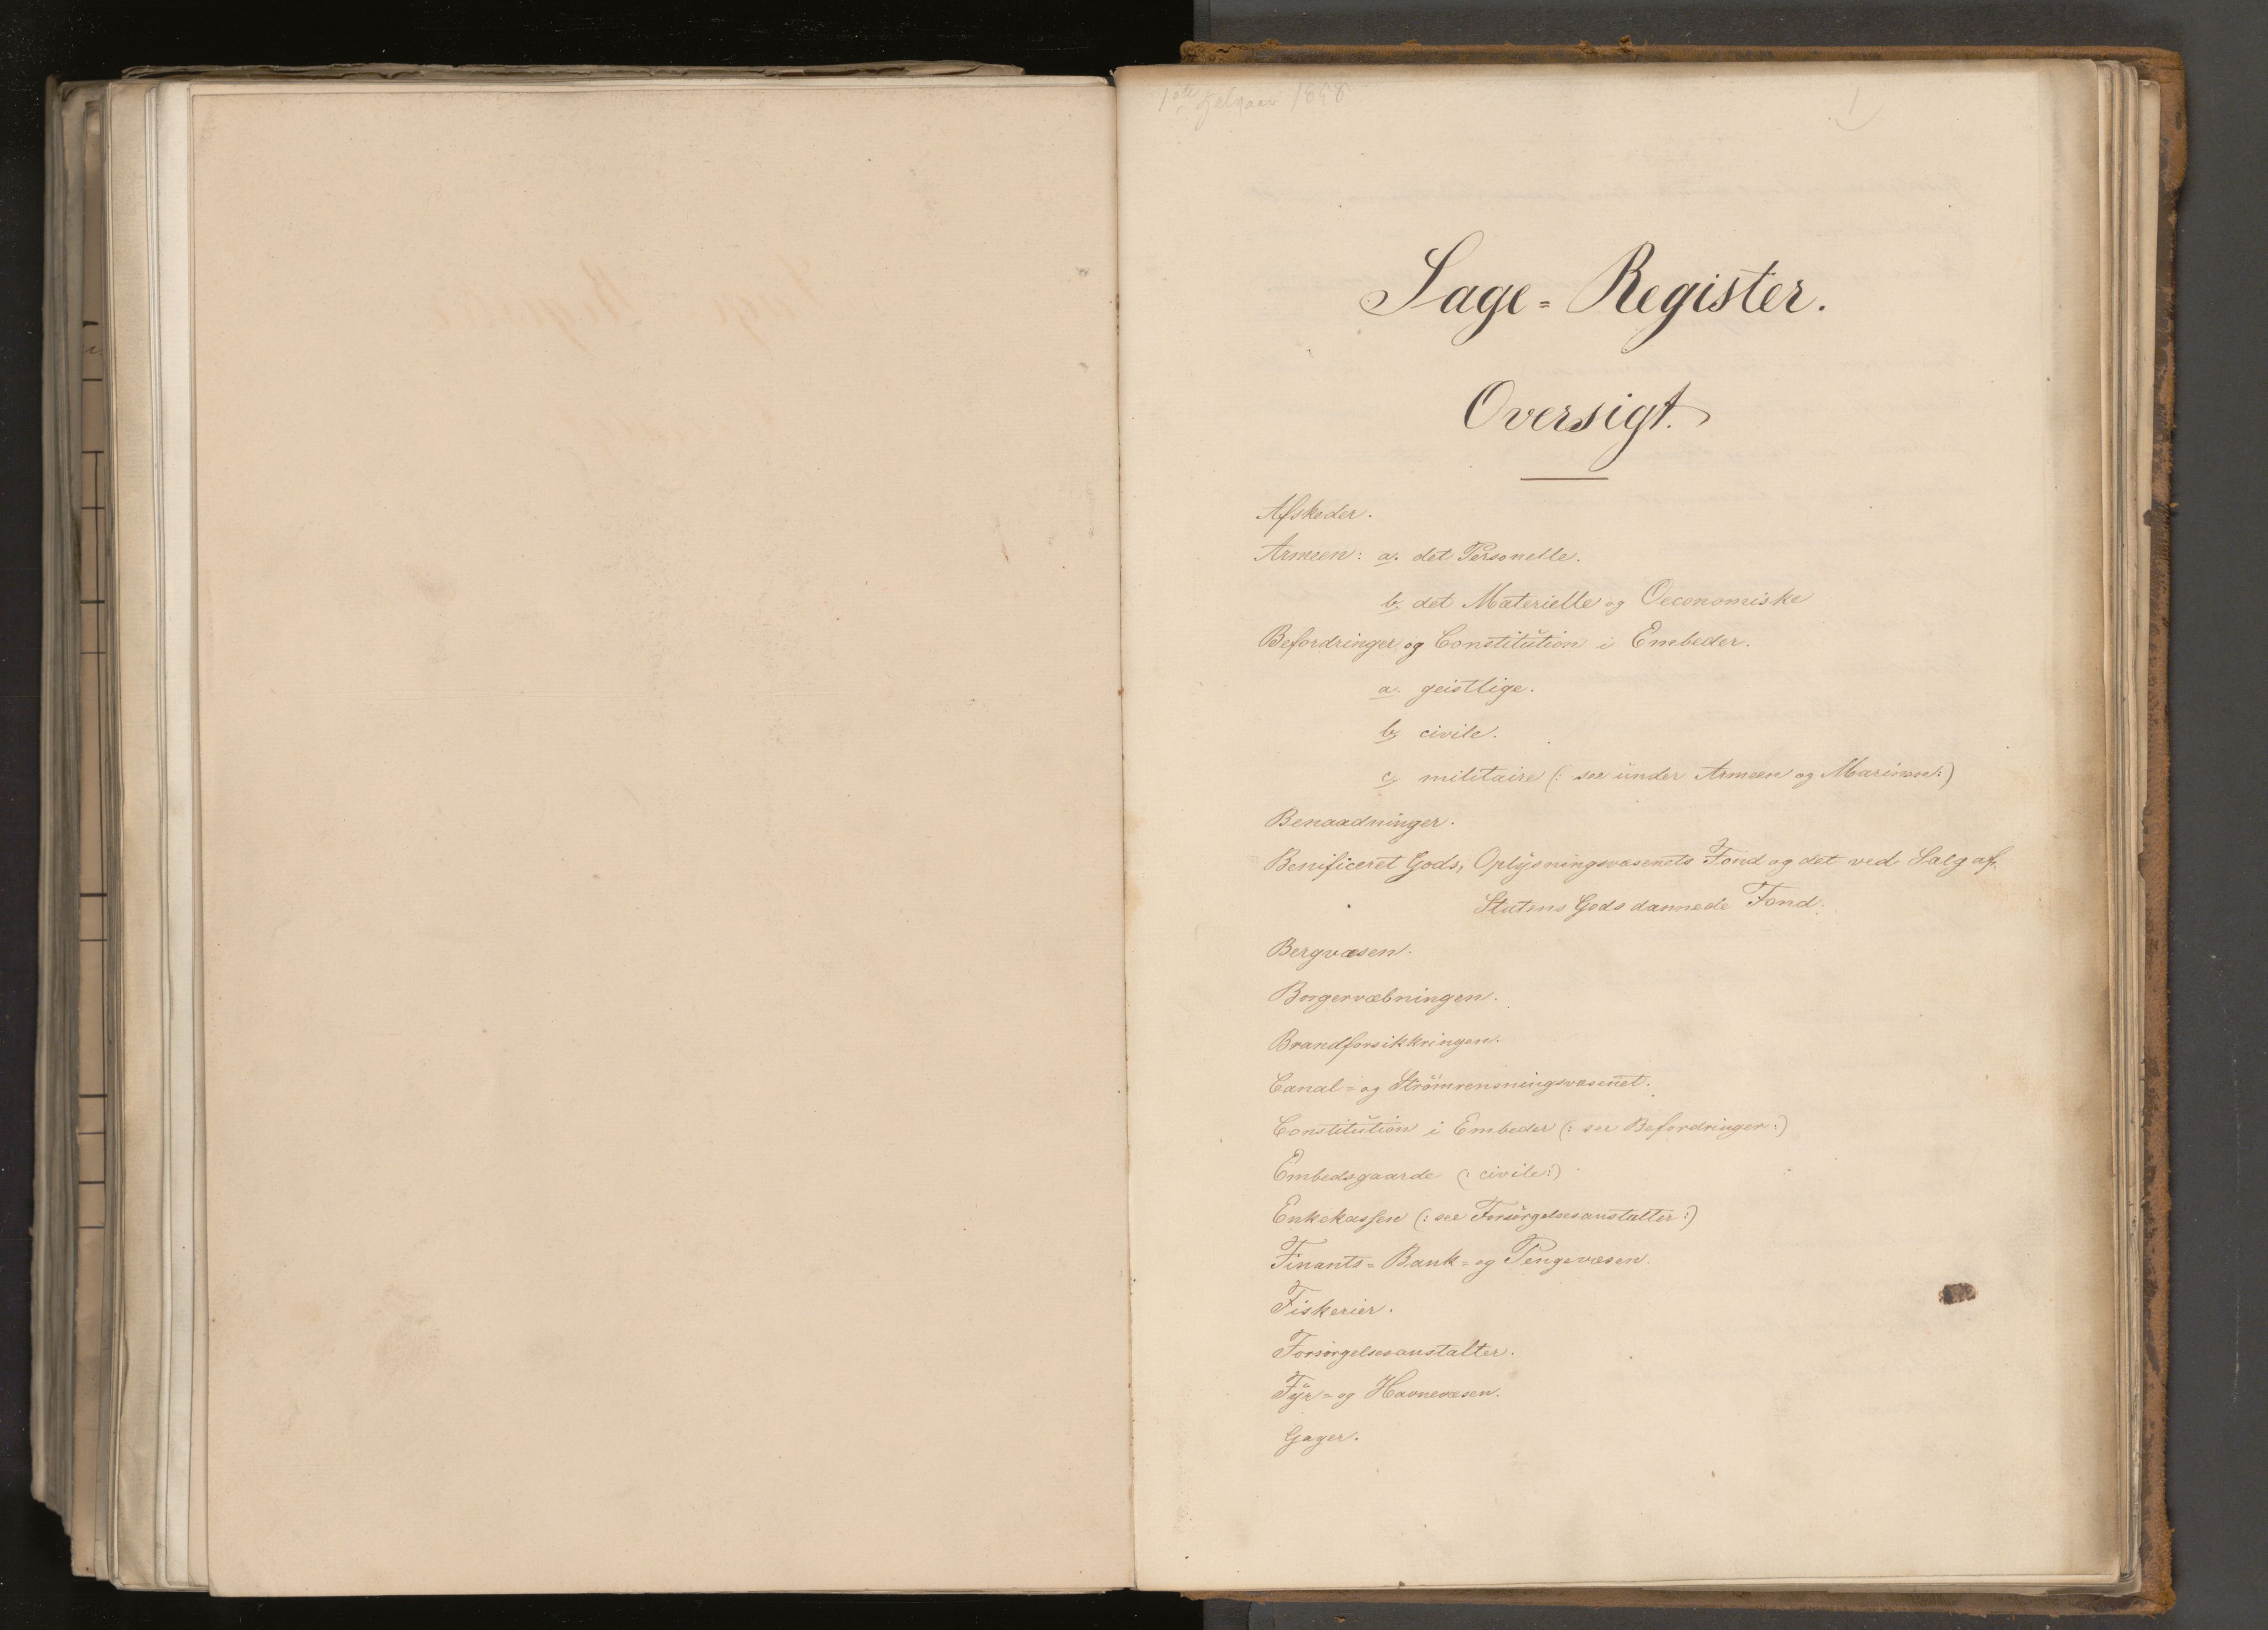 1ste Halvaar 1858
1
Sage=Register.
Oversigt.
Afskeder.
Armeen: a. det Personelle.
b, det Materielle og Oeconomiske
Befordringer og Constitution i Embeder.
a. geistlige.
b, civile.
c, militaire (: see under Armeen og Marinen:)
Benaadninger.
Benificeret Gods, Oplysningsvæsenets Fond og det ved Salg af
Statens Gods dannede Fond.
Bergvæsen.
Borgervæbningen.
Brandforsikkringen.
Canal= og Strömrensningsvæsenet.
Constitution i Embeder (: see Befordringer:)
Embedsgaarde (: civile:)
Enkekassen (: see Forsörgelsesanstalter:)
Finants= Bank= og Pengevæsen.
Fiskerier.
Forsörgelsesanstalter.
Fyr= og Havnevæsen.
Gager.